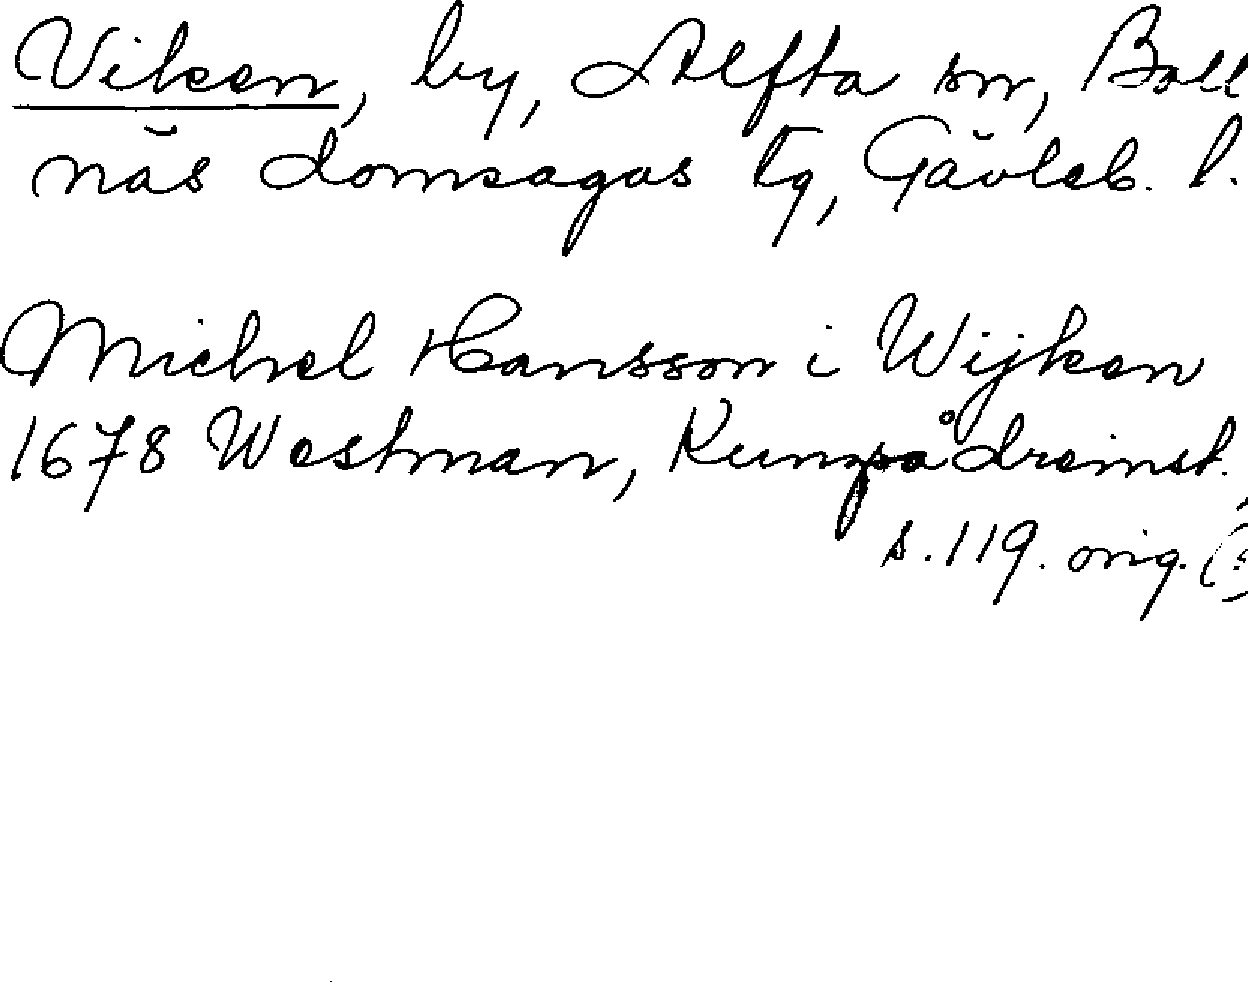 Viken, by, Alfta sn, Boll
näs domsagas tg, Gävleb. l.
Michel Hansson i Wijken
1678 Westman, Kungsådreinst.
s. 119. orig.